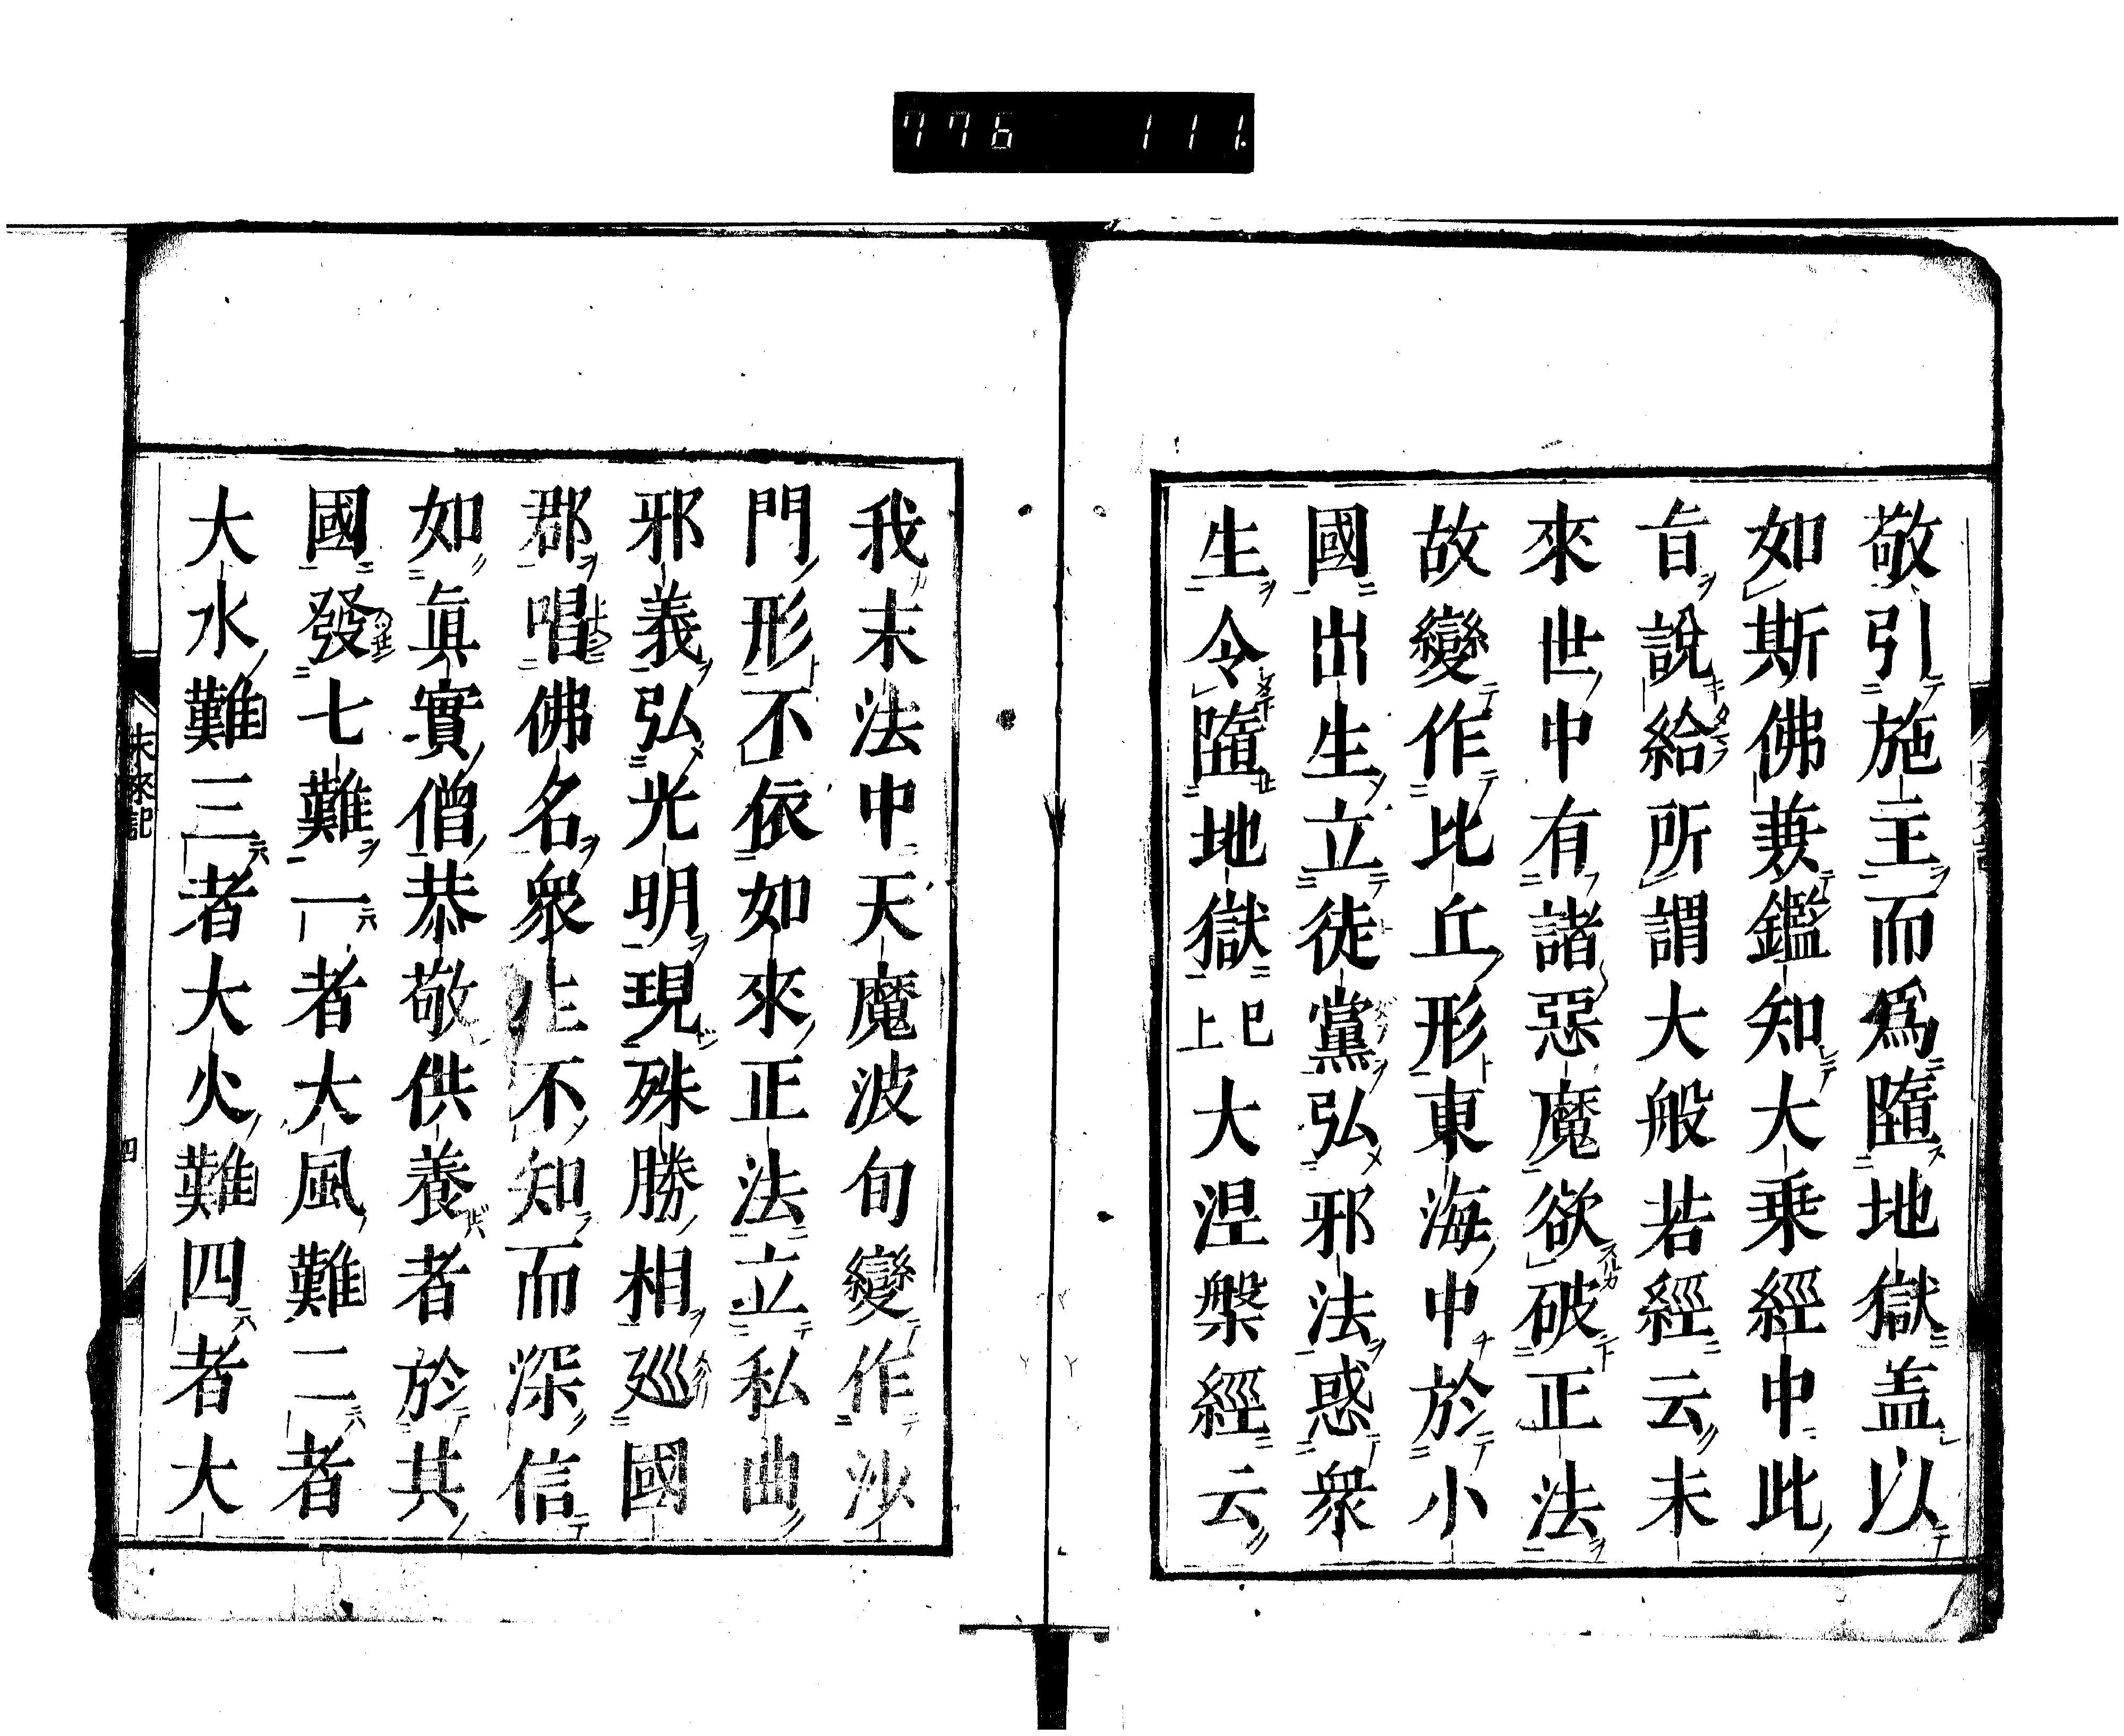 776 111
敬引施主而爲墮地獄盖以
如斯佛兼鑑知大乗經中此
旨說給所謂大般若經云未
來世中有諸惡魔欲破正法
故變作比丘形東海中於小
國出生立徒黨弘邪法惑衆
生令墮地獄已上大涅槃經云
我末法中天魔波旬變作沙
門形不依如來正法立私曲
邪義弘光明現殊勝相廵國
郡唱佛名衆生不知而深信
如眞實僧恭敬供養者於其
國發七難一者大風難二者
大水難三者大火難四者大
未來記
四